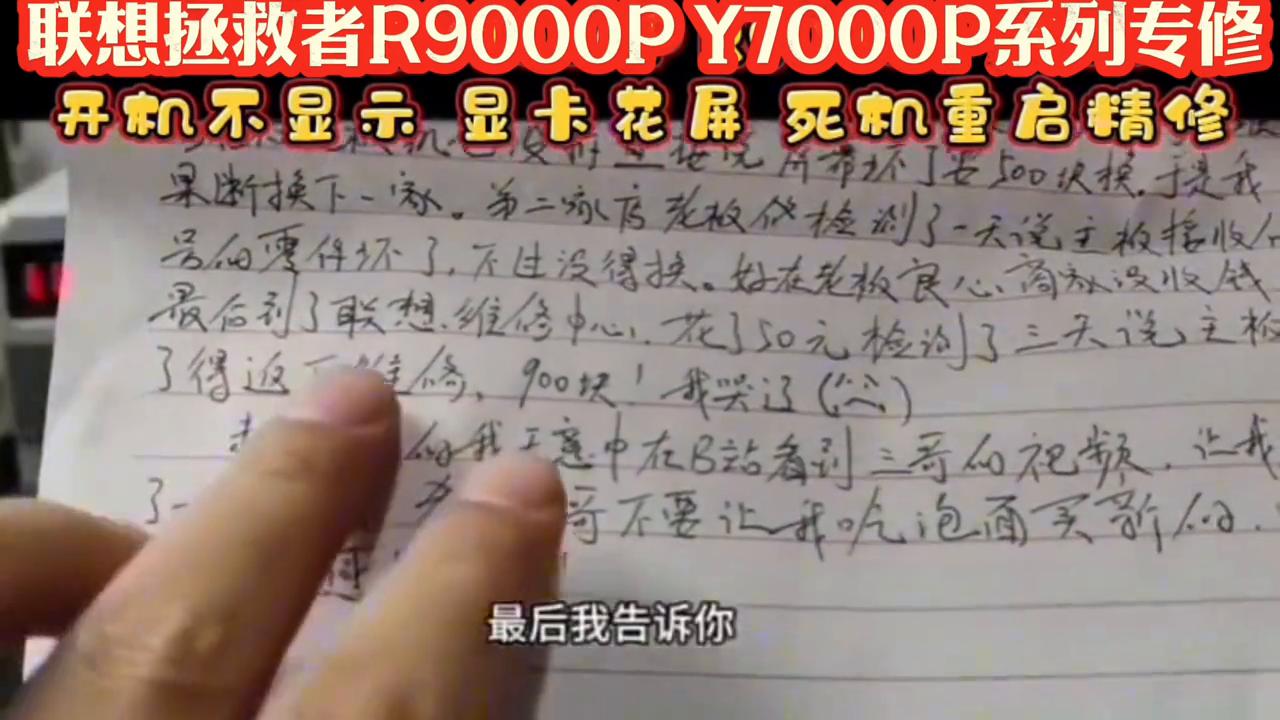 联想拯救者R9000P Y7000P系列专修
开机不显示 显卡花屏 死机重启精修
屏幕坏了要500块换.于是我
果断换下一家。第二家店老板他检测了一天说主板接收信
号的零件坏了,不过没得换。好在老板良心商家没收钱
最后到了联想维修中心.花了50元检测了三天说主板
了得返厂维修,900块!我哭了
的我无意中在B站看到三哥的视频.让我
了一
哥不要让我吃泡面买新的.
最后我告诉你